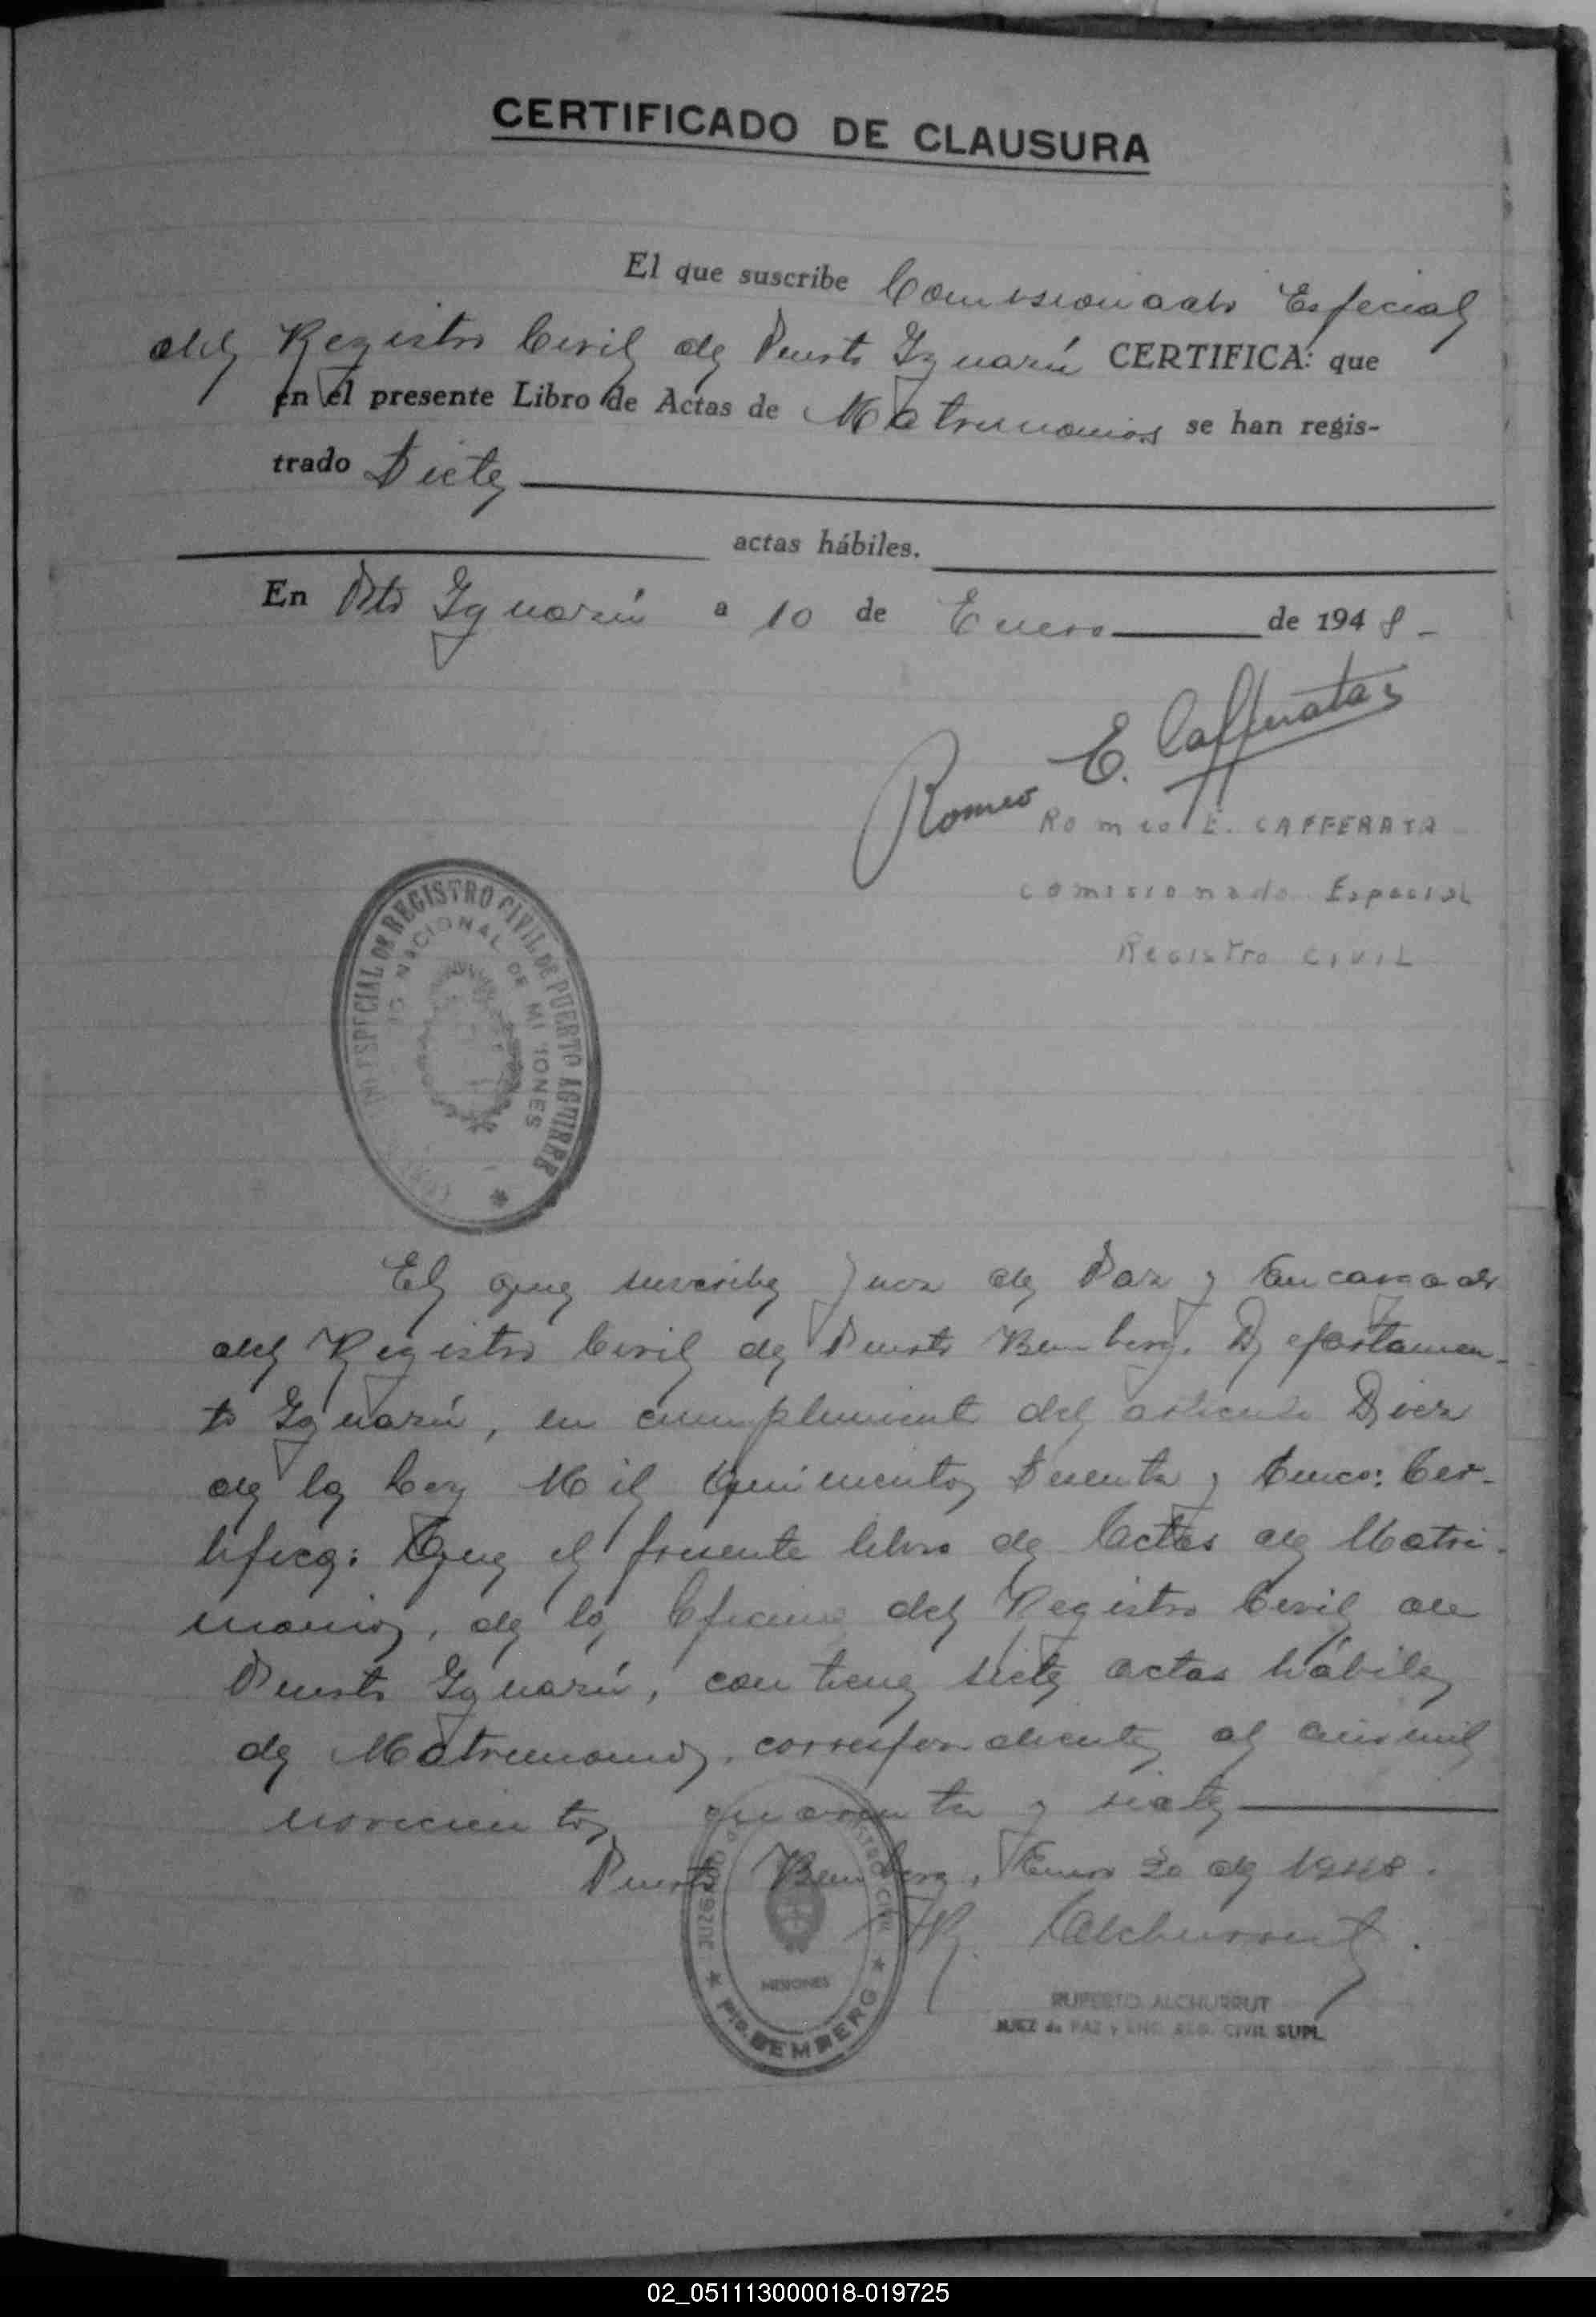 CERTIFICADO DE CLAUSURA
El que suscribe Comisionado Especial
del Registro Civil de Puerto Iguazú CERTIFICA: que
en el presente Libro de Actas de Matrimonios se han regis-
trado Siete
actas hábiles.
En Pto Iguazú a 10 de Enero de 1948-
Romeo E. Cafferata
Romeo E. CAFFERATA
comisionado Especial
Registro CIVIL
ESPECIAL DE REGISTRO CIVIL DE PUERTO AGUIRRE
NACIONAL DE MISIONES
El que suscribe Juez de Paz y Encargado
del Registro Civil de Puerto Bemberg. Departamen-
to Iguazú, en cumplimiento del artículo Diez
de la Ley Mil Quinientos Setenta y Cinco: Cer-
tifica: Que el presente libro de Actas de Matri-
monios, de la Oficina del Registro Civil de
Puerto Iguazú, contiene siete actas hábiles
de Matrimonios, correspondientes al año mil
novecientos cuarenta y siete
Puerto Bemberg, Enero 20 de 1948.
R. Alchurrut.
JUZGADO CIVIL
MISIONES
Pto. BEMBERG
RUPERTO ALCHURRUT
JUEZ de PAZ y ENC. REG. CIVIL SUPL.
02_051113000018-019725